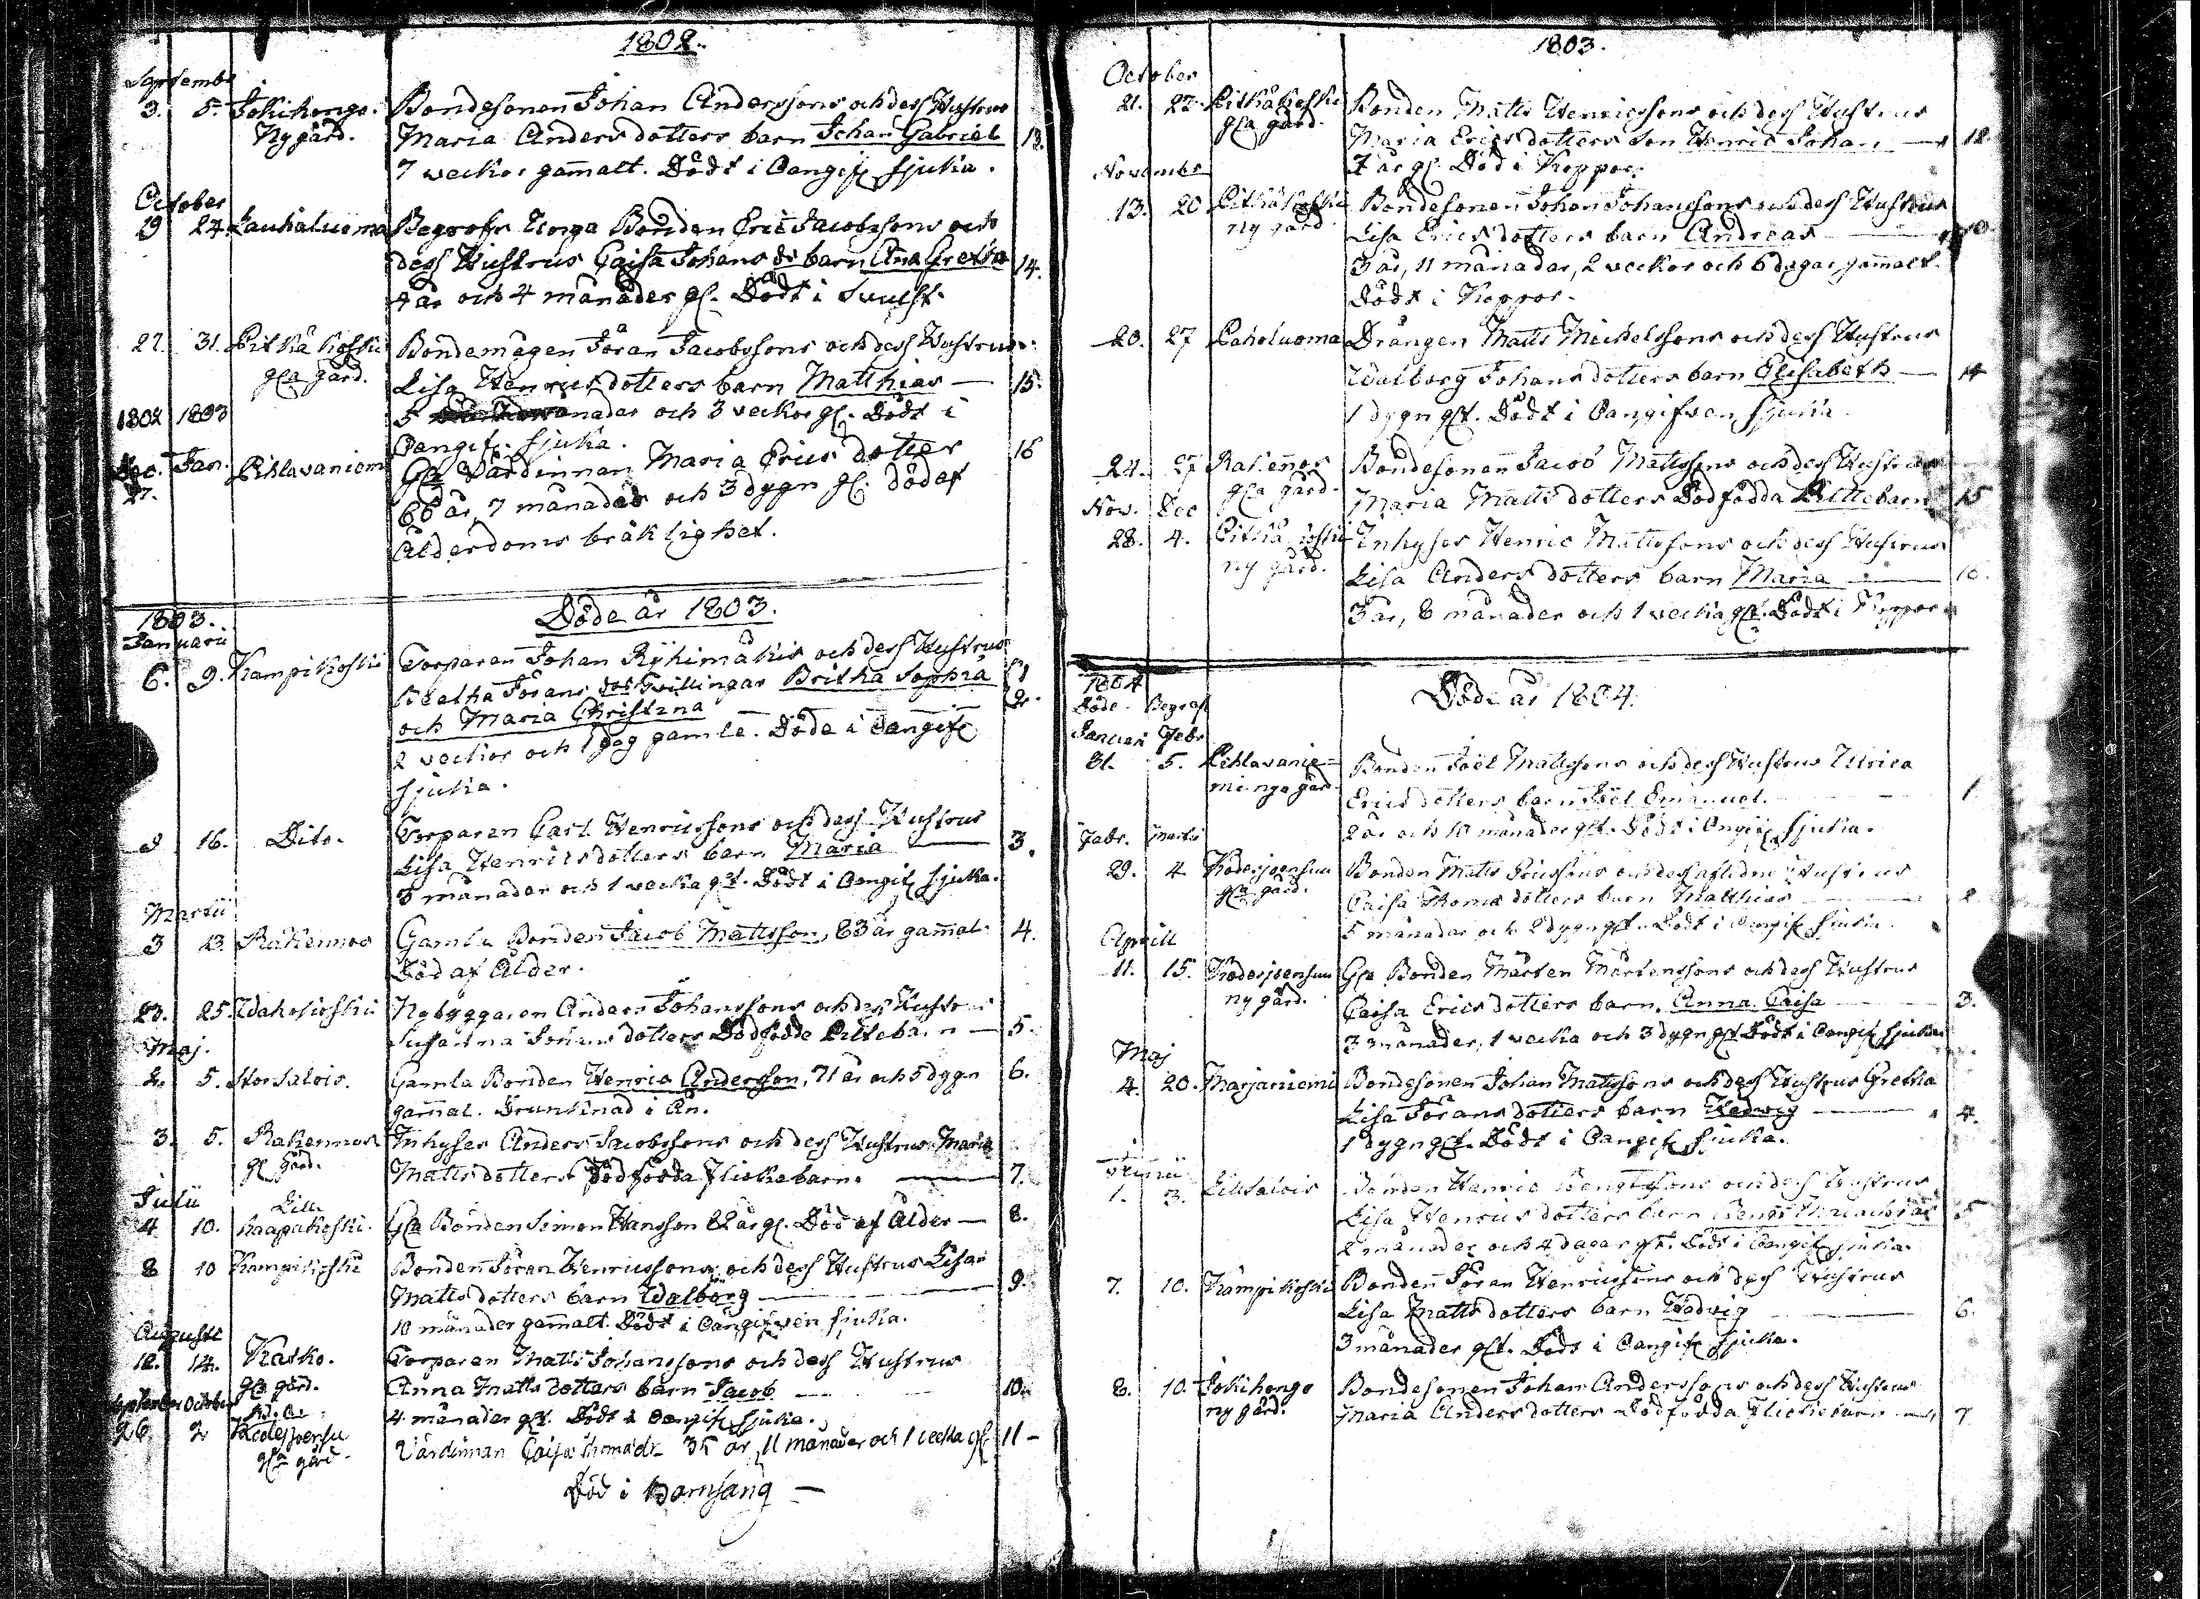 1802.
Septembr
3. 5. Jokihongo. Bondesonen Johan Anderssons och dess Hustrus
Ny gård. Maria Anders dotters barn Johan Gabriel 13.
7 veckor gam̄alt. Dödt i Oangifn sjuka.
October
19 24. Lauhaluoma Begrofs Unga Bonden Eric Jacobssons och
dess Hustrus Caisa Johans dr barn Ana Gretha 14.
4 år och 4 månader gl. Dödt i Svulst.
27. 31. Pitkäkoski Bondemågen Jöran Jacobssons och dess Hustrus
gla gård. Lisa Henrics dotters barn Matthias — 15.
1802 1803 5 månader och 3 veckor gl. Dödt i
Oangifn sjuka.
Dec. Jan. Pihlavaniem Gla Värdinnan Maria Erics dotter 16
27. 66 år, 7 månader och 3 dygn gl. död af
Ålderdoms bräklighet.
Döde år 1803.
1803.
Januarii
6. 9. Kampikoski Torparen Johan Ryhimäkis och dess Hustrus
Beatha Jörans dos Tvillingar Britha Sophia 1
och Maria Christina 2.
2 veckor och 1 dag gamle. Döde i Oangifn
sjuka.
9 16. Dito. Torparen Carl Henricssons och dess Hustrus
Lisa Henricsdotters barn Maria — 3.
8 månader och 1 vecka glt. Dödt i Oangif sjuka.
Martii
3 13. Rahennos Gamla Bonden Jacob Mattsson, 83 år gam̄al. 4.
Död af Ålder.
23. 25. Wahokoski Nybyggaren Anders Johanssons och dess Hustrus
Susanna Johans dotters Dödfödde Piltebarn — 5.
Maj.
2. 5. Storsalois. Gamla Bonden Henric Andersson, 71 år och 5 dygn 6.
gam̄al. Drunknad i Ån.
3. 5. Rahennos Inhyses Anders Jacobssons och dess Hustrus Maria
gl gård. Matts dotters Dödfödda Flickebarn. — 7.
Julii Lill
4 10. haapakoski. Gla Bonden Simon Hansson 82 år gl. Död af Ålder — 8.
8 10 Kampikoski Bonden Jöran Henricssons och dess Hustrus Lisa
Matts dotters barn Walborg — 9.
10 månader gam̄alt. Dödt i Oangifven sjuka.
Augusti
12. 14. Katko. Torparen Matts Johanssons och dess Hustrus
gla gård. Anna Matts dotters barn Jacob — 10.
September October 4 månader glt. Dödt i Oangifn sjuka.
26 2 Kodesjoensu Värdinnan Caisa Thomædr 35 år, 11 månader och 1 vecka gl 11 —
gla gård. Död i Barnsäng —
1803.
October
21. 22. Pitkäkoski Bonden Matts Henricssons och dess Hustrus
gla gård. Maria Erics dotters Son Henric Johan — 12.
7 år gl. Död i Koppor.
November
13. 20 Pitkäkoski Bondesonen Johan Johanssons och dess Hustrus
ny gård Lisa Erics dotters barn Andreas —
3 år, 11 månader, 2 veckor och 6 dagar gam̄alt.
Dödt i Koppor.
20. 27 Paholuoma Drängen Matts Michelssons och dess Hustrus
Walborg Johans dotters barn Elisabeth — 14
1 dygn glt. Dödt i Oangifven sjuka.
24. 27 Rahennos Bondesonen Jacob Mattssons och dess Hustrus
gla gård. Maria Matts dotters Dödfödda Piltebarn 15
Nov. Dec
28. 4. Pitkäkoski Inhyses Henric Mattssons och dess Hustrus
ny gård. Lisa Anders dotters barn Maria — 16.
3 år, 8 månader och 1 vecka glt. Dödt i Koppor
1804 Döde år 1804.
Döde Begraf
Januari Febr
31. 5. Pihlavanie- Bonden Joël Mattssons och dess Hustrus Ulrica
mi nya går Erics dotters barn Joël Emanuel. 1
2 år och 10 månader glt. Dödt i Oangif sjuka.
Febr. Martii
29. 4. Kodesjoensuu Bonden Matts Ericssons och dess aflidne Hustrus
gla gård. Caisa Thomæ dotters barn Matthias — 2
5 månader och 2 dygn glt. Dödt i Oangif sjuka.
Aprill
11. 15. Kodesjoensuu Gla Bonden Mårten Mårtenssons och dess Hustrus
ny gård. Caisa Erics dotters barn, Anna Caisa — 3.
3 månader, 1 vecka och 3 dygn glt Dödt i Oangif sjuka
Maj
4. 20. Marjaniemi Bondesonen Johan Mattssons och dess Hustrus Gretha
Lisa Jörans dotters barn Hedvig — 4.
1 dygn glt. Dödt i Oangif sjuka.
Junii
1. 3. Lillsalois Bonden Henric Bengtssons och dess Hustrus
Lisa Henrics dotters barn Bengt 5
2 månader och 4 dagar glt. Dödt i Oangif sjuka.
7. 10. Kampikoski Bonden Jöran Henricssons och dess Hustrus
Lisa Matts dotters barn Hedvig — 6.
3 månader glt. Dödt i Oangif sjuka.
8. 10. Jokihongo Bondesonen Johan Anderssons och dess Hustrus
ny gård. Maria Anders dotters Dödfödda Flickebarn — 7